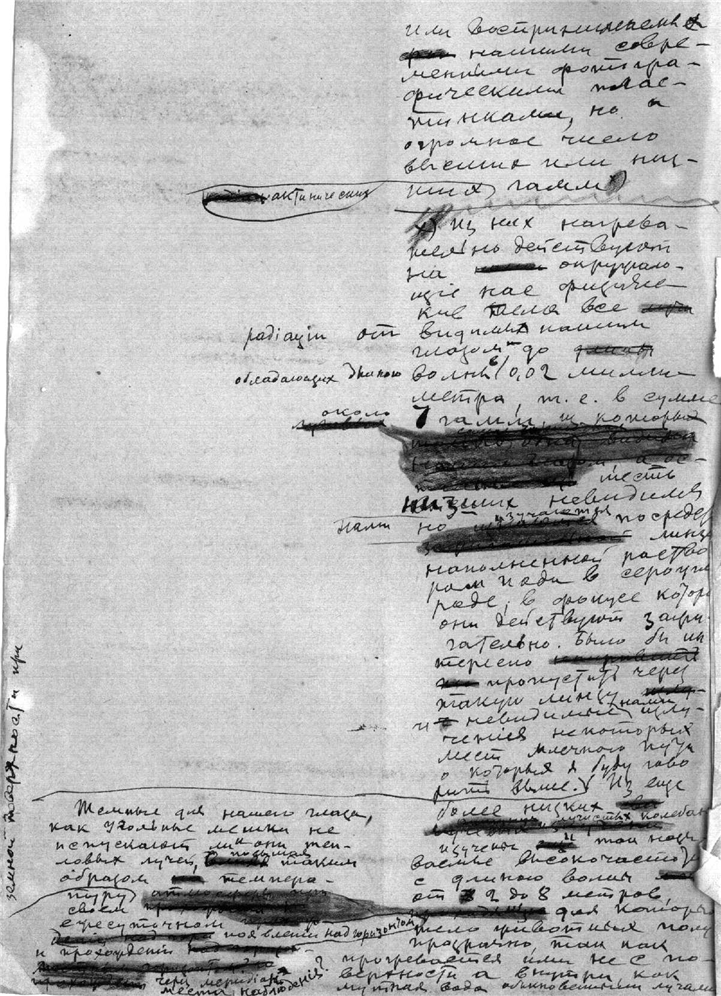 или воспринимаемых
нашими совре-
менными фотогра-
фическими плас-
тинками, но и
огромное число
высших или низ-
ших гамм
актинических
Из них нагрева-
тельно действуют
на окружаю-
щие нас физичес-
кие тела все
радиации от видимых нашим
глазом до
обладающих длиною волны 0,02 милли-
метра, т. е. в сумме
около 7 гамм, из которых
шесть
низших невидимы
нами но изучаются посредст
линзы
наполненной раство
ром иода в сероугле
роде, в фокусе котор
они действуют зажи-
гательно. Было бы ин
тересно
пропустить через
такую линзу
и невидимые нами излу-
чения некоторых
мест млечного пути
о которых я буду гово
рить выше. Из еще
более низких
колебан
изучены так назы
ваемые высокочастот
с длиною волны
от 2 до 8 метров
для которых
тело животных полу
прозрачно, так как
прогревается ими не с по-
верхности а внутри как
мутная вода обыкновенными лучами
Темные для нашего глаза,
как угольные мешки не
испускают ли они теп-
ловых лучей, таким
образом темпера-
туру
своем
ежесуточном
появлении над горизонтом
и прохождении
через меридиан
места наблюдения?
земной поверхности при